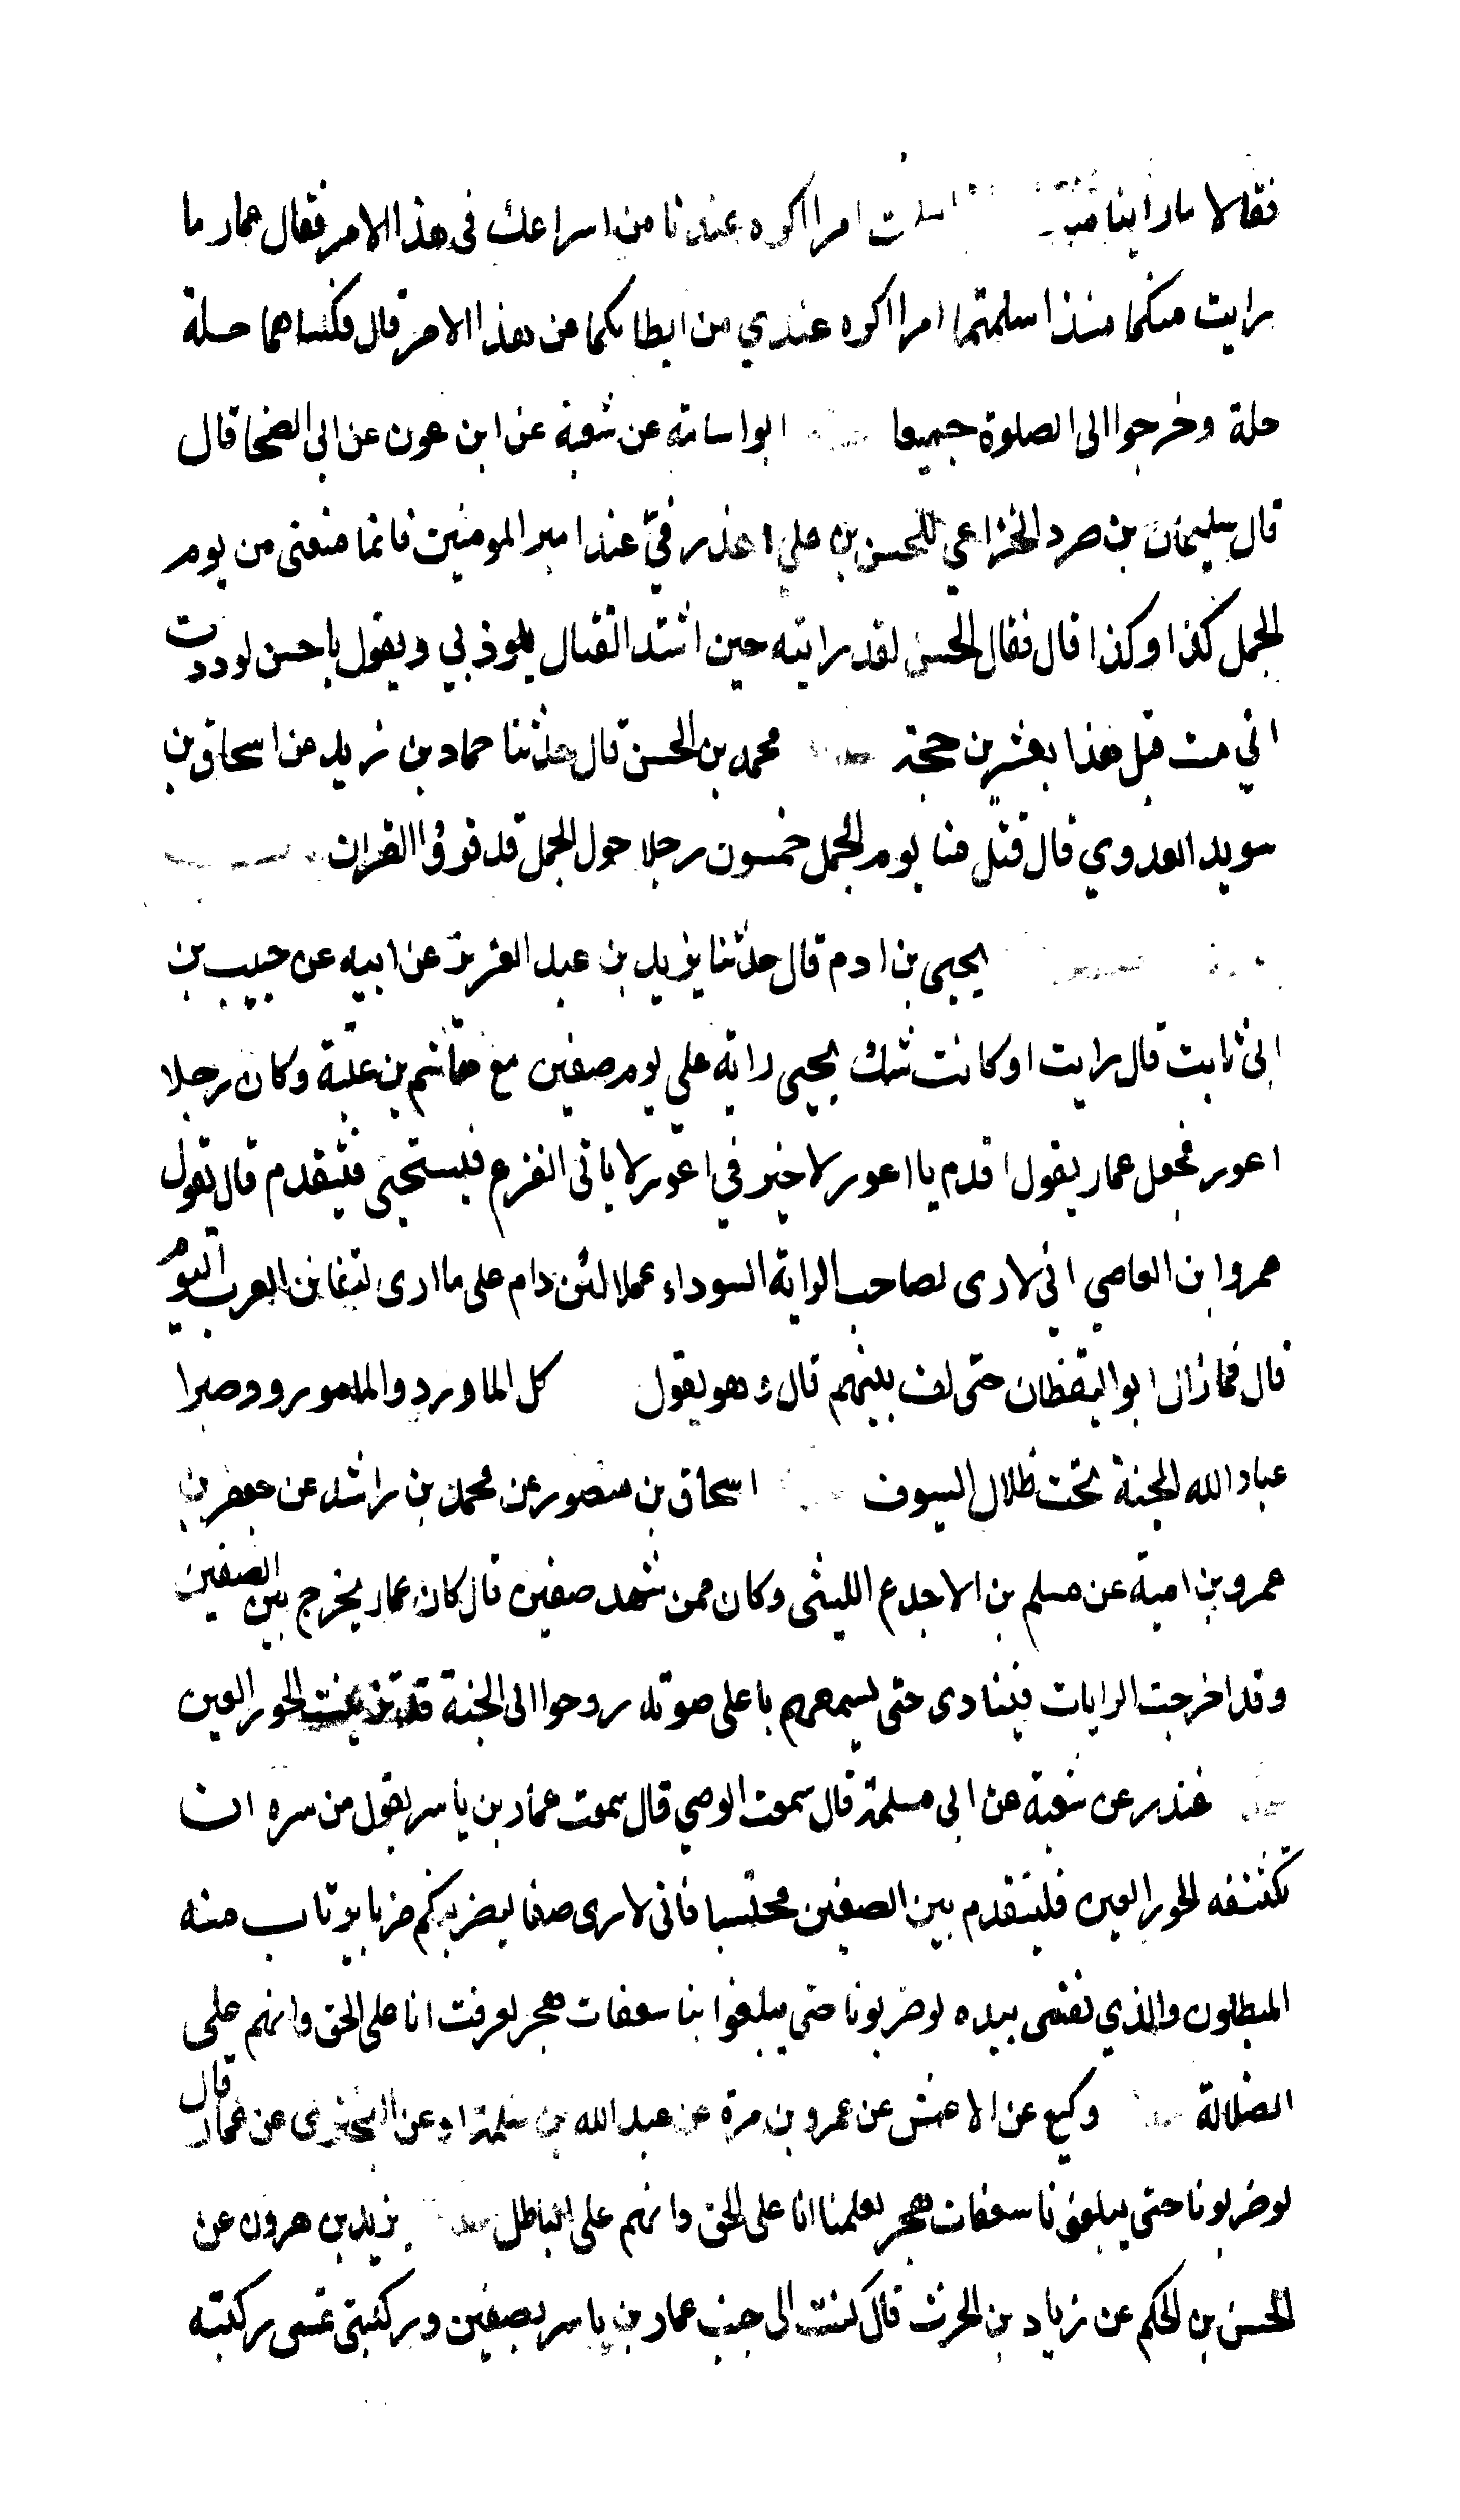 فقالا ما راينا منك اسلمت امرا اكره عندنا من اسراعك فى هذا الامر فقال عمار ما
رايت منكما منذ اسلمتما امرا اكره عندي من ابطائكما عن هذا الامر قال فكساهما حلة
حلة وخرجوا الى الصلوة جميعا ابو اسامه عن شعبة عن ابن عون عن ابى الضحا قال
قال سليمان بن صرد الخزاعي للحسن بن علي اعذرني عند امير المومنين فانما منعنى من يوم
الجمل كذا وكذا قال فقال الحسن لقد رايته حين اشتد القتال يلوذ بي ويقول يا حسن لوددت
اني مت قبل هذا بعشرين حجة محمد بن الحسن قال حدثنا حماد بن زيد عن اسحاق بن
سويد العدوي قال قتل منا يوم الجمل خمسون رجلا حول الجمل قد قروا القران
يحيى بن ادم قال حدثنا يزيد بن عبد العزيز عن ابيه عن حبيب بن
ابى ثابت قال رايت او كانت شك يحيى راية علي يوم صفين مع هاشم بن عتبة وكان رجلا
اعور فجعل عمار يقول اقدم يا اعور لا خير في اعور لا ياتى الفزع فيستحيى فيتقدم قال يقول
عمرو ابن العاصي اني لارى لصاحب الراية السوداء عملا لئن دام على ما ارى لتفانن العرب اليوم
قال فما زال ابو اليقظان حتى لف بينهم قال وهو يقول كل الما ورد والما مورود صبرا
عباد الله الجنة تحت ظلال السيوف اسحاق بن منصور عن محمد بن راشد عن جعفر بن
عمرو بن امية عن مسلم بن الاجدع الليثى وكان ممن شهد صفين قال كان عمار يخرج بين الصفين
وقد اخرجت الرايات فينادى حتى يسمعهم باعلى صوته روحوا الى الجنة قد تزينت الحور العين
غندر عن شعبة عن ابى مسلمة قال سمعت الوصي قال سمعت عمار بن ياسر يقول من سره ان
تكتنفه الحور العين فليتقدم بين الصفين محتسبا فانى لارى صفا ليضربنكم ضربا يرتاب منه
المبطلون والذي نفسى بيده لو ضربونا حتى يبلغوا بنا سعفات هجر لعرفت انا على الحق وانهم على
الضلالة وكيع عن الاعمش عن عمرو بن مرة عن عبد الله بن سلمة او عن البخترى عن عمار قال
لو ضربونا حتى يبلغونا سعفات هجر لعلمنا انا على الحق وانهم على الباطل يزيد بن هرون عن
الحسن بن الحكم عن زياد بن الحرث قال كنت الى جنب عمار بن ياسر بصفين وركبتى تمس ركبته